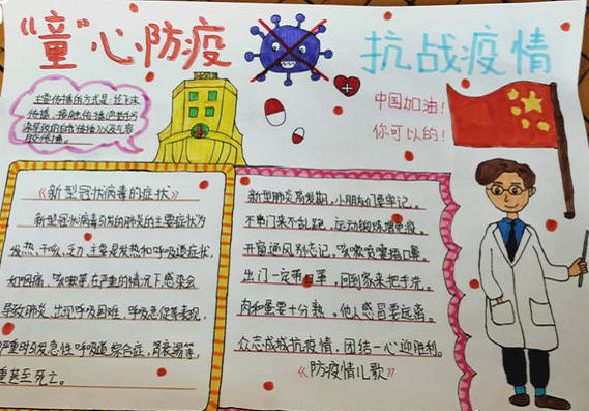 "童"心防疫
抗战疫情
主要传播的方式是：经飞沫
传播、接触传播
中国加油！
你可以的！
《新型冠状病毒的症状》
新型冠状病毒引发的肺炎的主要症状为
发热、干咳、乏力、主要是发热和呼吸道症状，
如咽痛，咳嗽等，在严重的情况下感染会
导致肺炎，出现呼吸困难，呼吸急促等表现，
严重时引发急性呼吸道综合症，肾衰竭等，
重甚至死亡。
新型肺炎高发期，小朋友们要牢记。
不串门来不乱跑，运动锻炼增免疫。
开窗通风别忘记，咳嗽喷嚏捂口鼻。
出门一定带口罩。回到家来把手洗。
肉和蛋要十分熟。他人感冒要远离。
众志成城抗疫情，团结一心迎胜利。
《防疫情儿歌》